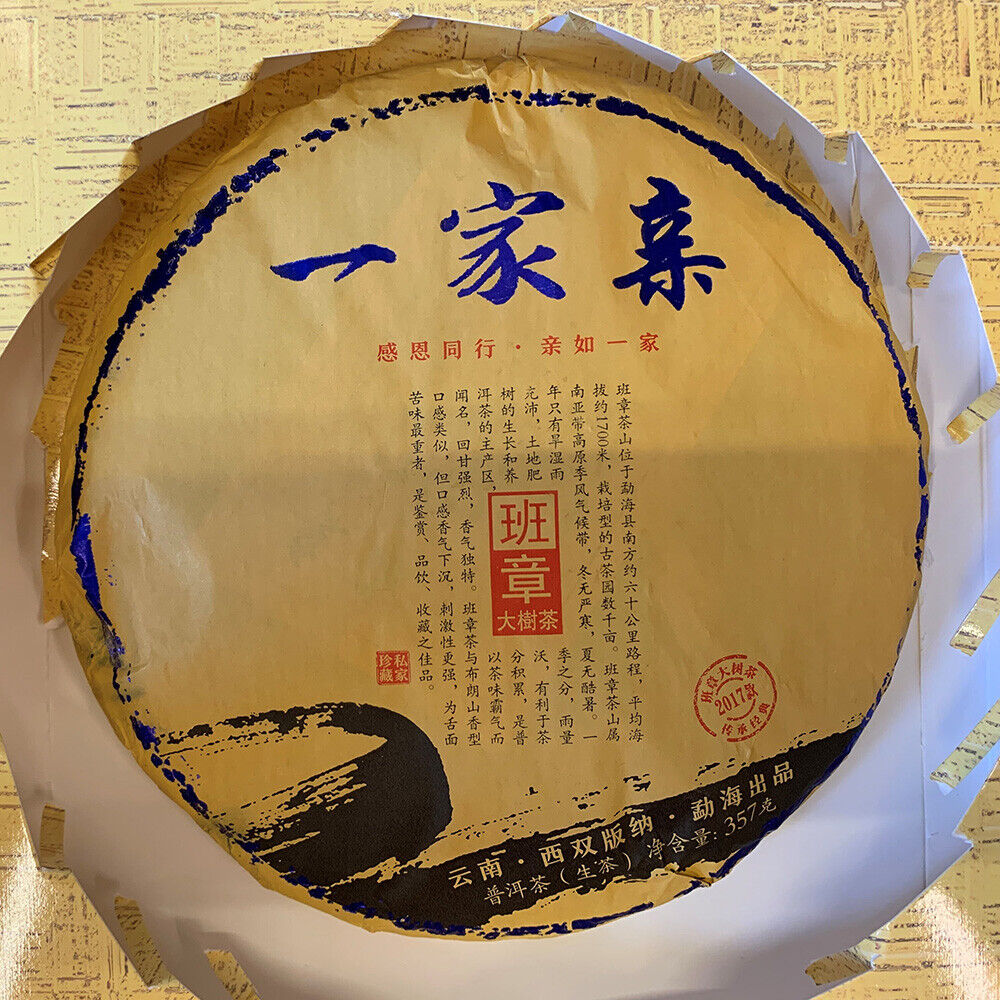 一家亲
感恩同行·亲如一家
班章茶山位于勐海县南方约六十公里路程，平均海
拔约1700米，栽培型的古茶园数千亩。班章茶山属
南亚带高原季风气候带，冬无严寒，夏无酷暑。一
年只有旱湿雨季之分，雨量
充沛，土地肥沃，有利于茶
树的生长和养分积累，是普
洱茶的主产区，以茶味霸气而
闻名，回甘强烈，香气独特。班章茶与布朗山香型
口感类似，但口感香气下沉，刺激性更强，为舌面
苦味最重者，是鉴赏、品饮、收藏之佳品。
班
章
大樹茶
私家
珍藏
班章大树茶
2017款
传承经典
云南·西双版纳·勐海出品
普洱茶（生茶）净含量：357克